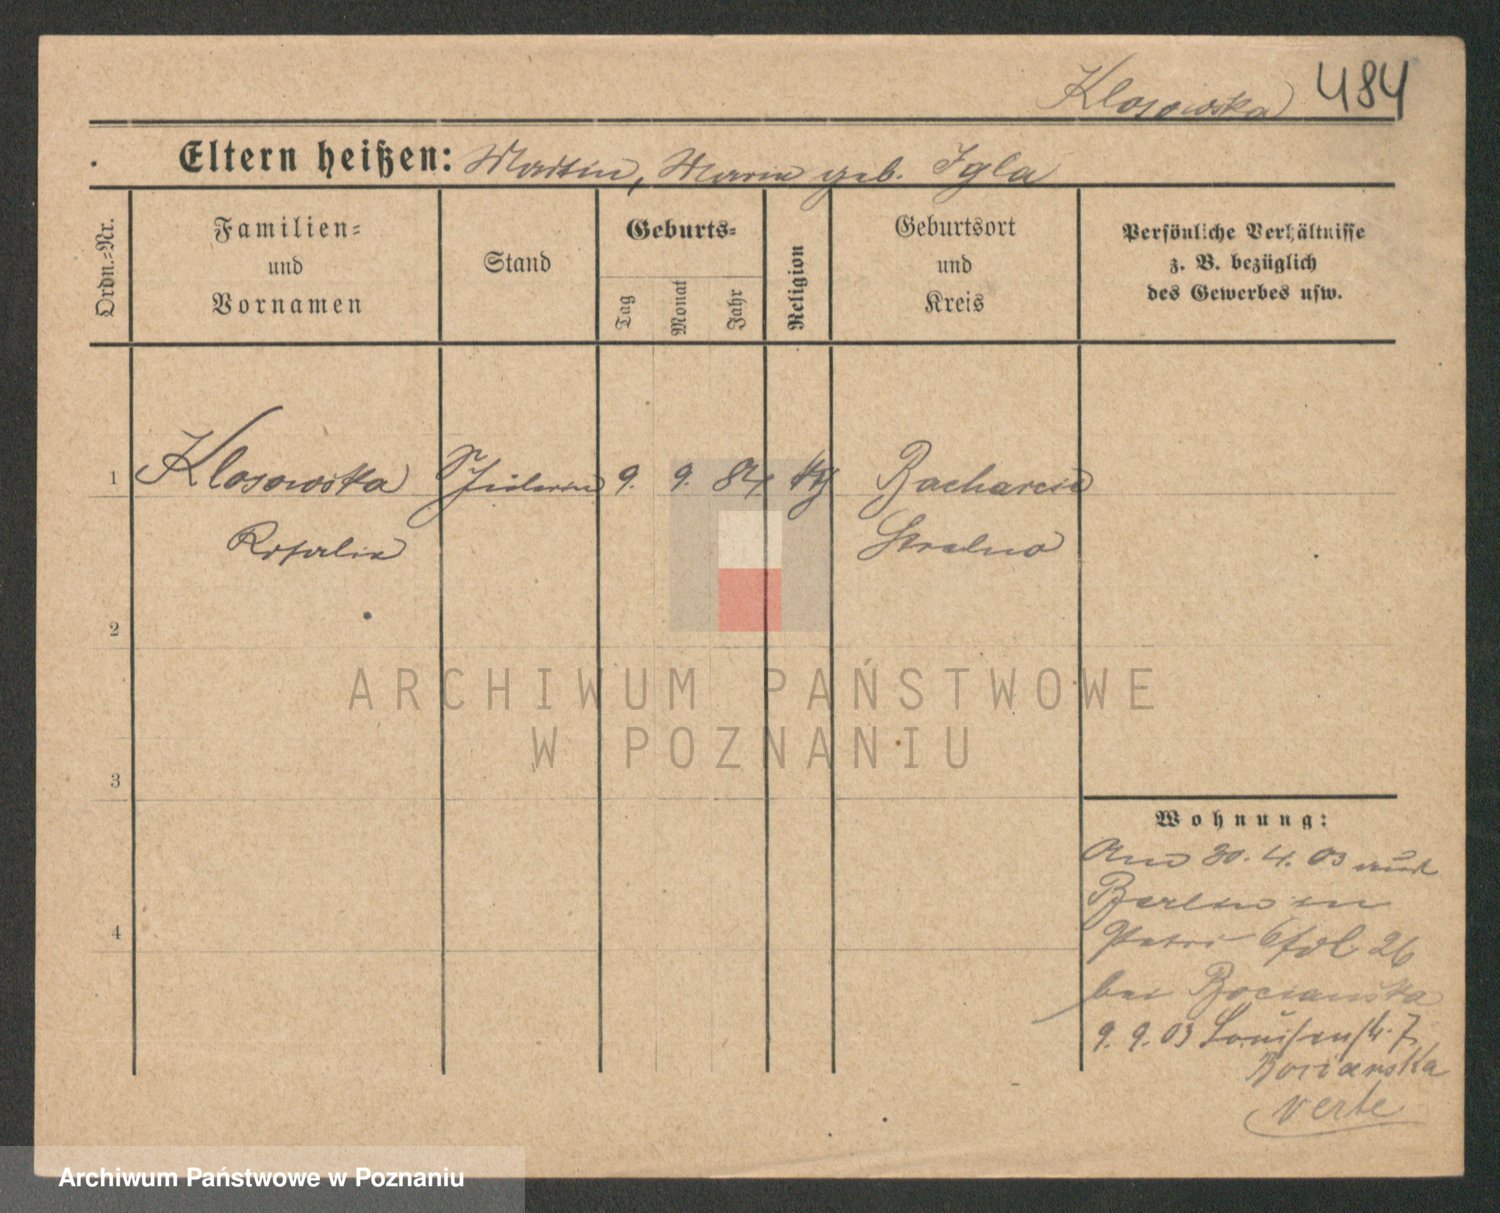 Klosowska 484
Eltern heißen: Martin, Maria geb. Igla
Ordn.-Nr.
Familien-
und
Vornamen
Stand
Geburts-
Tag
Monat
Jahr
Religion
Geburtsort
und
Kreis
Persönliche Verhältnisse
z. B. bezüglich
des Gewerbes usw.
1 Klosowska Schülerin 9. 9. 84 kth Bacharcie
Rosalie Strelno
2
3
4
ARCHIWUM PAŃSTWOWE
W POZNANIU
Wohnung:
30. 4. 03 aus
Berlin in
Petri 26
bei Bocianska
9. 9. 03 Louisenstr. 7
Bocianska
verte
Archiwum Państwowe w Poznaniu